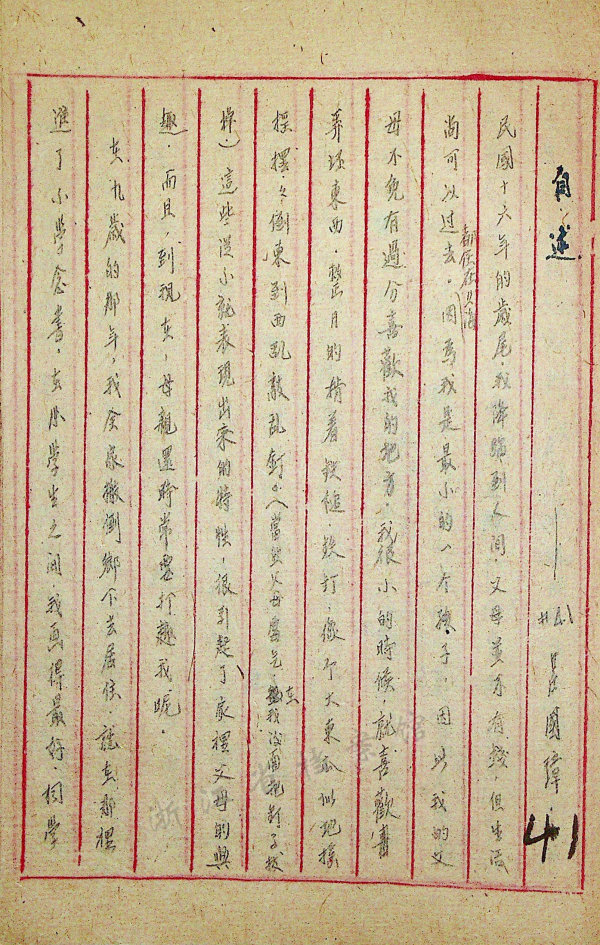 自述
#41 国璋
41
民國十六年的歲尾我降臨到人間，父母並不有錢，但生活
尚可以过去，都住在上海 因爲我是最小的一个孩子，因此我的父
母不免有過分喜歡我的地方，我很小的時候，就喜歡
弄埂東西，整日的揹着鉄鎚鉄釘，像个大東瓜似地搖
搖擺，々倒東到西乱敲乱釘。（當父母看見，在我没面把釘子拔
掉）這些従小就表現出來的特性，很引起了家裡父母的興
趣，而且，到現在，母親還時常要打趣我呢。
在九歲的那年，我全家搬倒鄉下去居住，就在那裡
進了小學念書，在小學生之间我画得最好，同學
浙江省档案馆